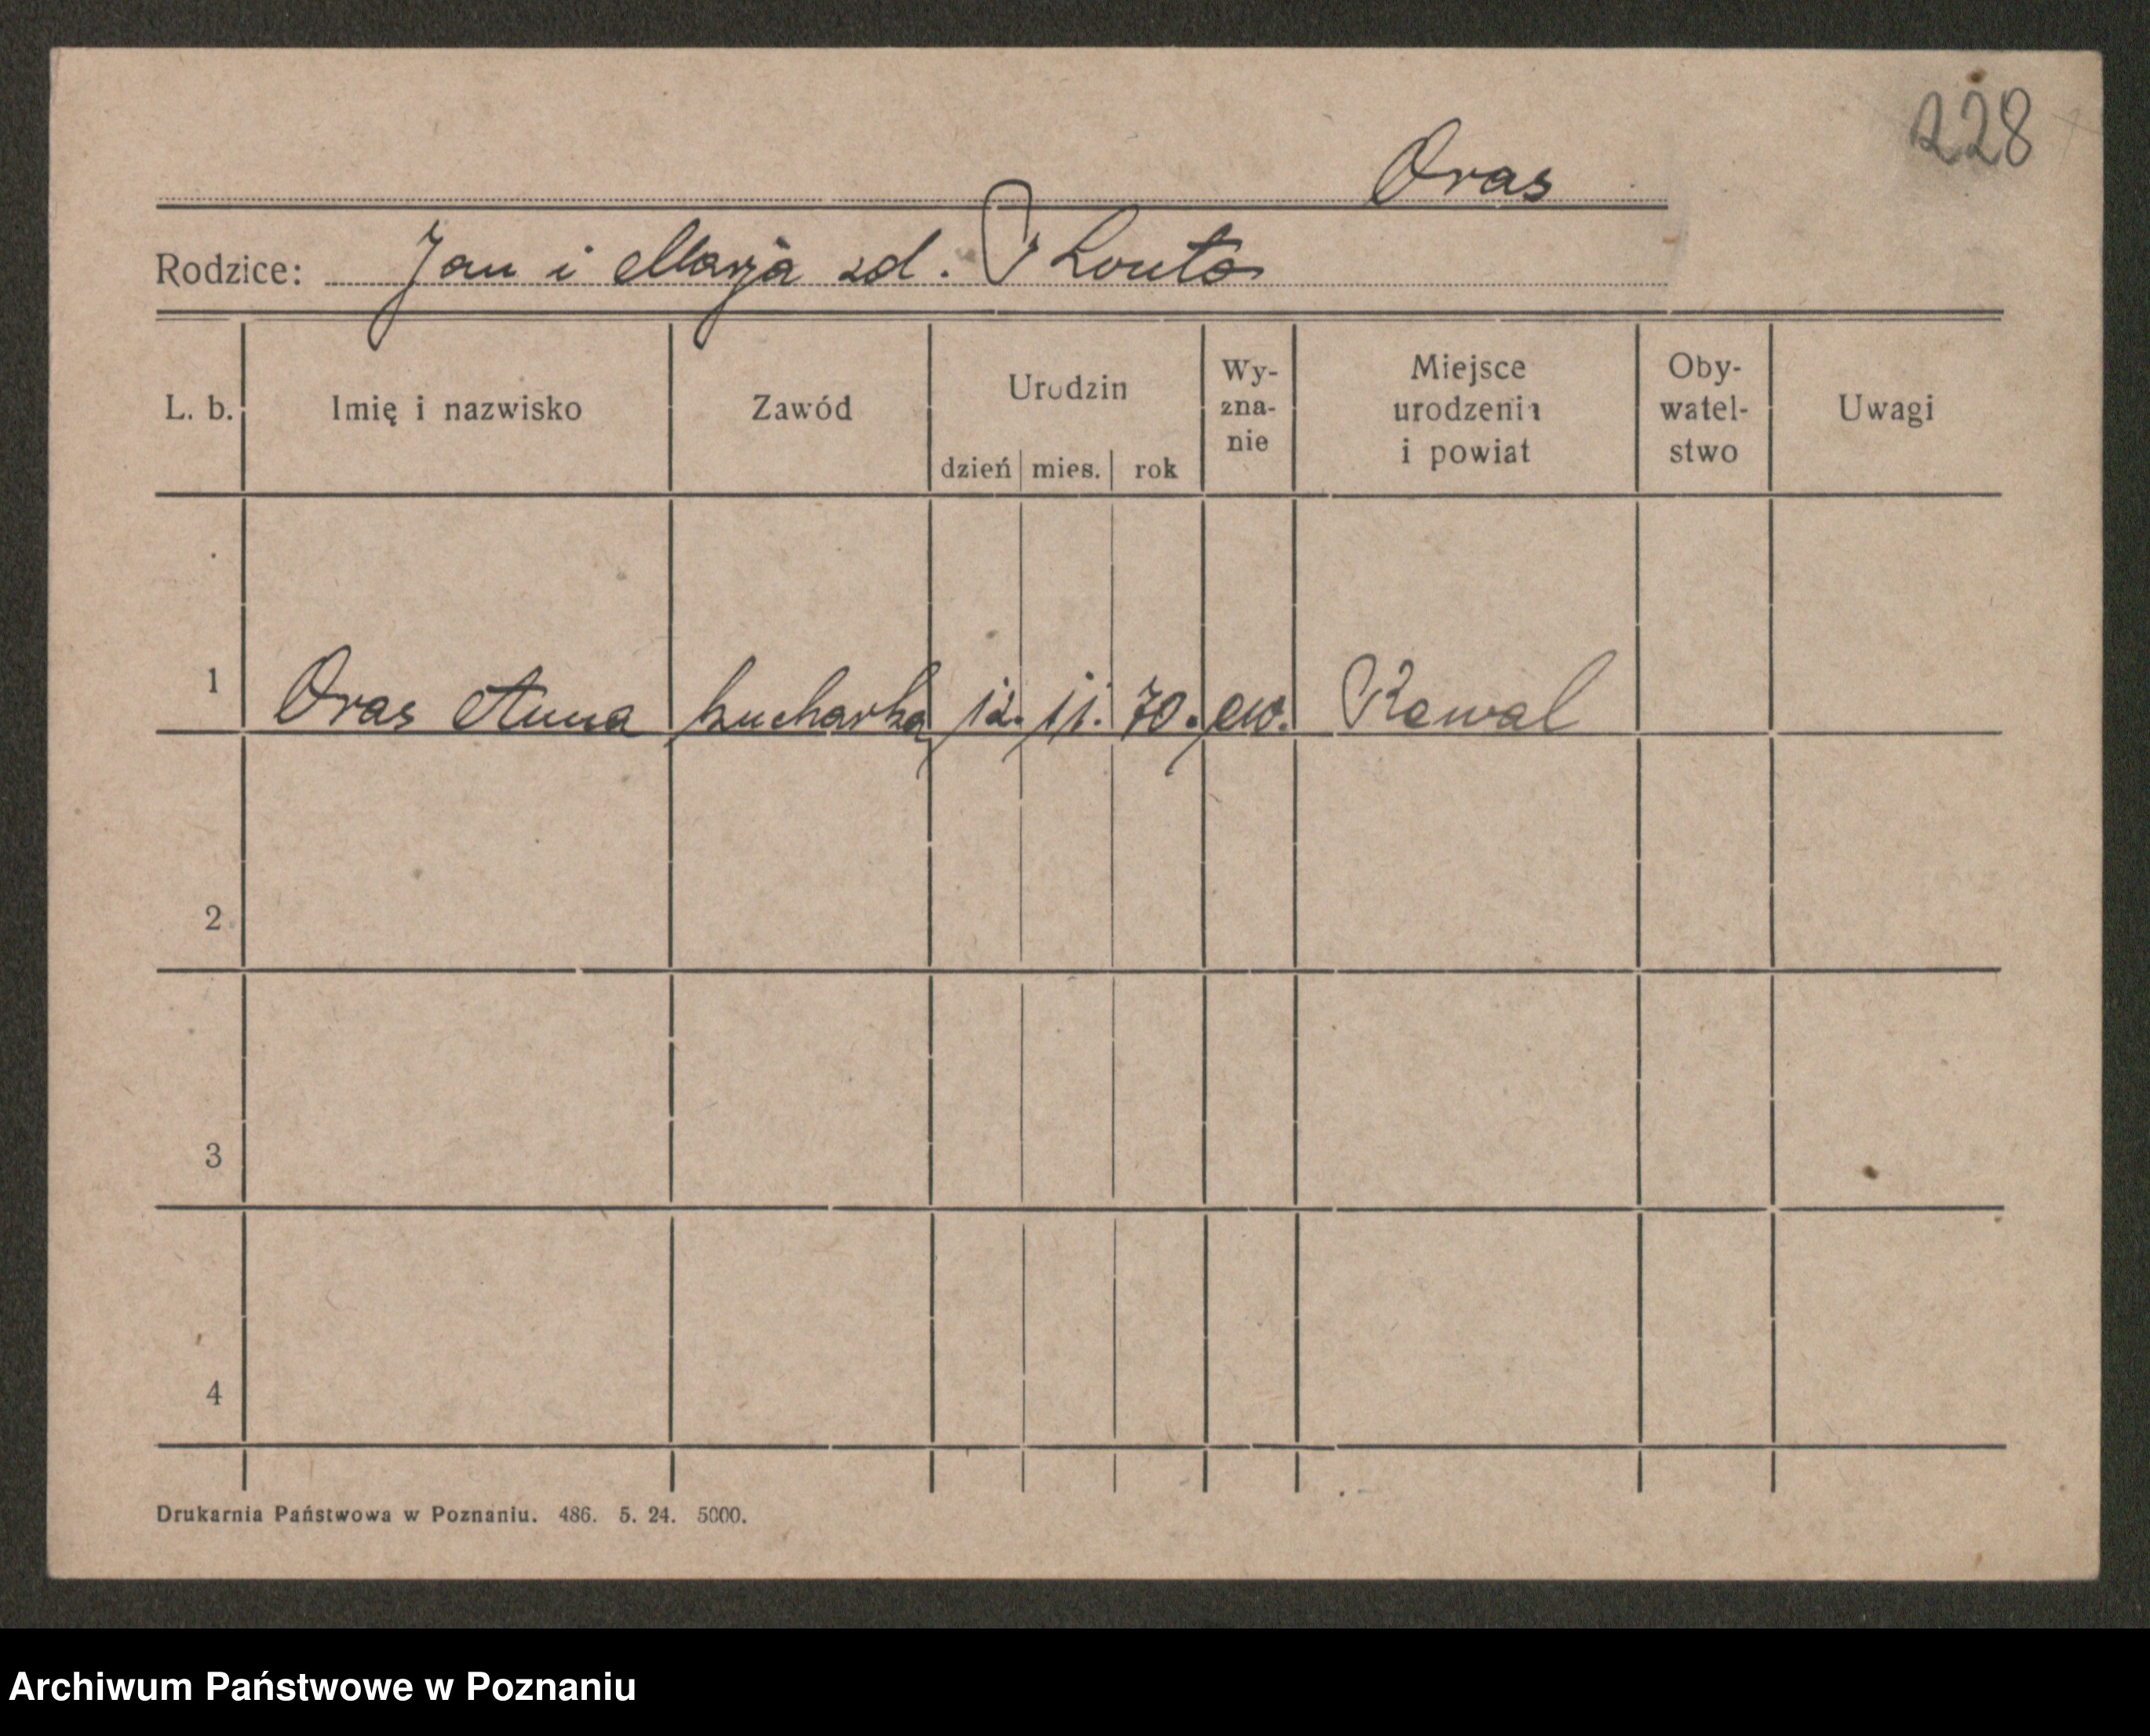 228
Oras
Rodzice: Jan i Marja zd.
L. b. Imię i nazwisko Zawód Urodzin dzień mies. rok Wy-zna-nie Miejsce urodzenia i powiat Oby-watel-stwo Uwagi
1 Oras Anna kucharka 12. 11. 70. ew. Kowal
2
3
4
Drukarnia Państwowa w Poznaniu. 486. 5. 24. 5000.
Archiwum Państwowe w Poznaniu